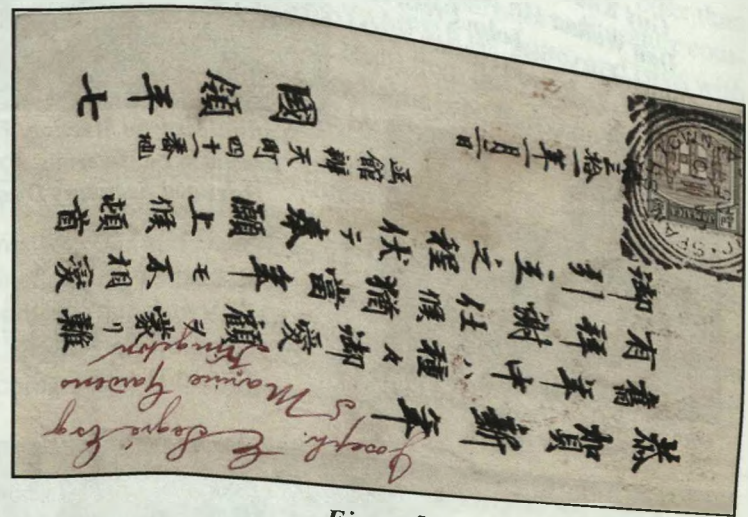 恭賀新年
舊年中ハ種々御愛顧ヲ蒙リ難
有拜謝仕候猶當年モ不相變
御引立之程伏テ奉願上候頓首
三拾一年一月一日
函館辨天町四十一番地
國領平七
Joseph. C Segre Esq
5 Marine Gardens
Kingston
Figure